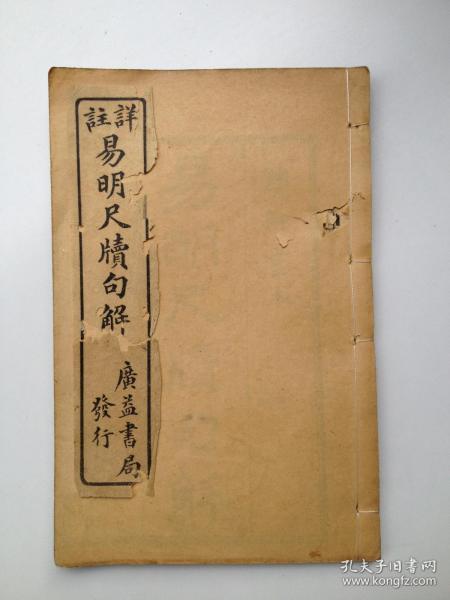 詳註
易明尺牘句解
上
廣益書局
發行
孔夫子旧书网
www.kongfz.com